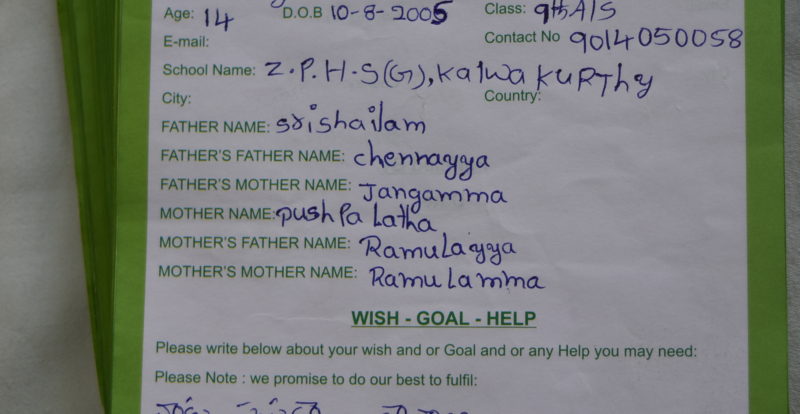 Age: 14 D.O.B 10-8-2005 Class: 9th A/S
E-mail: Contact No 9014050058
School Name: Z.P.H.S(G), Kalwa KURThy
City: Country:
FATHER NAME: Srishailam
FATHER'S FATHER NAME: chennayya
FATHER'S MOTHER NAME: Jangamma
MOTHER NAME: pushpa Latha
MOTHER'S FATHER NAME: Ramulayya
MOTHER'S MOTHER NAME: Ramulamma
WISH - GOAL - HELP
Please write below about your wish and or Goal and or any Help you may need:
Please Note : we promise to do our best to fulfil: